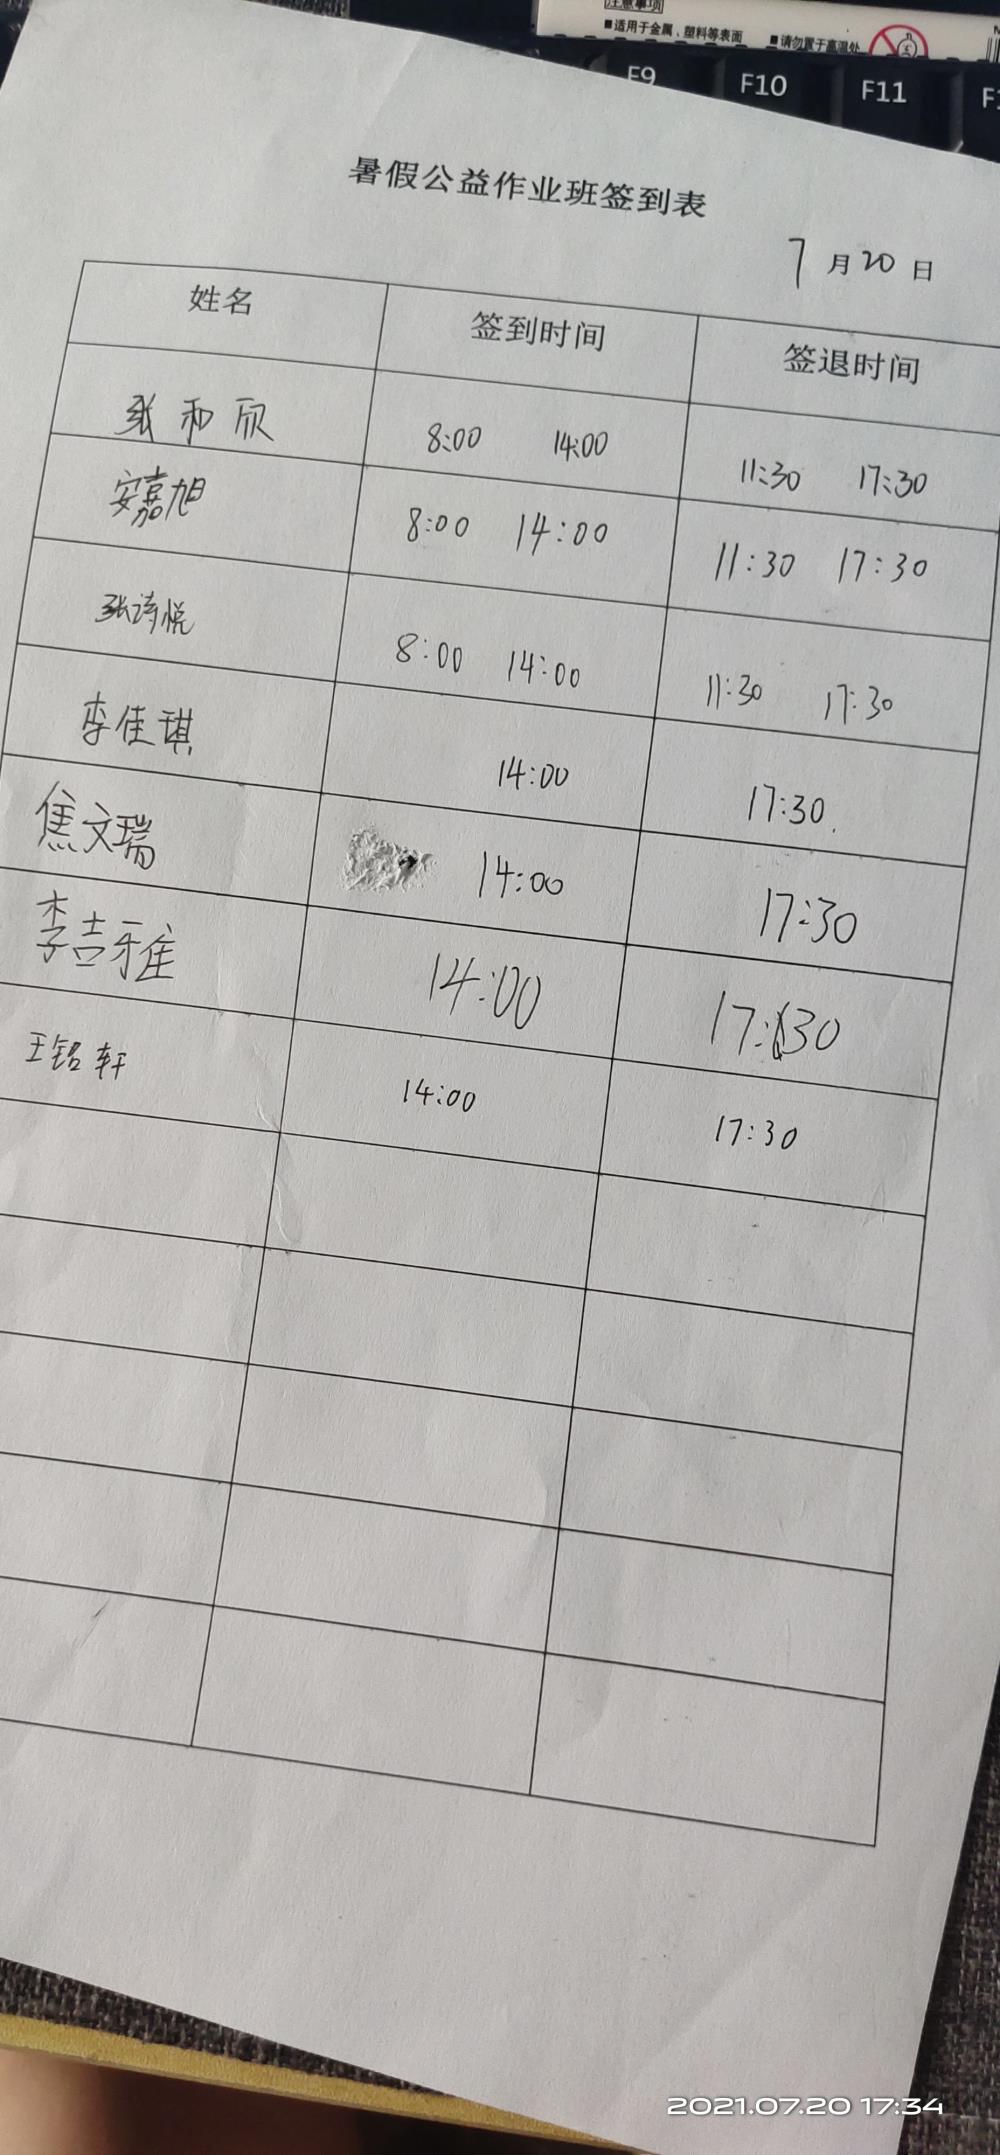 注意事项
■适用于金属、塑料等表面 ■请勿置于高温处
F9 F10 F11
暑假公益作业班签到表
7月20日
姓名 签到时间 签退时间
张和欣 8:00 14:00 11:30 17:30
安嘉旭 8:00 14:00 11:30 17:30
张诗悦 8:00 14:00 11:30 17:30
李佳琪 14:00 17:30
焦文瑞 14:00 17:30
李吉雅 14:00 17:30
王铭轩 14:00 17:30
2021.07.20 17:34